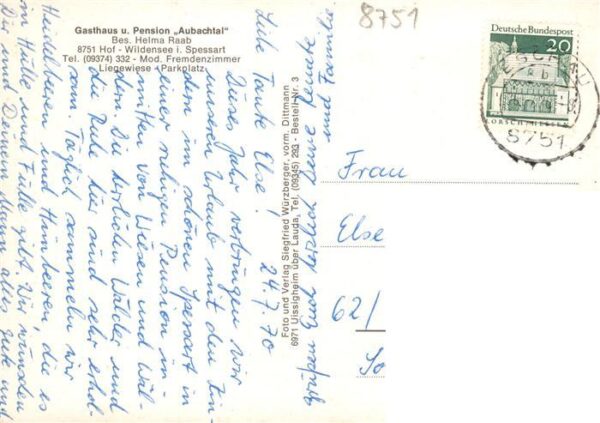 Gasthaus u. Pension „Aubachtal"
Bes. Helma Raab
8751 Hof - Wildensee i. Spessart
Tel. (09374) 332 - Mod. Fremdenzimmer
Liegewiese - Parkplatz
8751
Deutsche Bundespost
20
LORSCH/HESSEN
ESCHAU
8751
24.7.70
Liebe Tante Else!
Dieses Jahr verbringen wir
unseren Urlaub mit den
dern im schönen Spessart in
einer ruhigen Pension in-
mitten von Wiesen und Wäl-
dern. Die herrlichen Wälder und
die Ruhe hier sind sehr erhol-
sam. Täglich sammeln wir
Heidelbeeren und Himbeeren, die es
in Hülle und Fülle gibt. Wir wünschen
Dir und Deinem Mann alles Gute und
grüßen Euch herzlich Deine Renate
und Familie
Foto und Verlag Siegfried Würzberger, vorm. Dittmann
6971 Uissigheim über Lauda, Tel. (09345) 293 - Bestell-Nr. 3
Frau
Else
62/
So